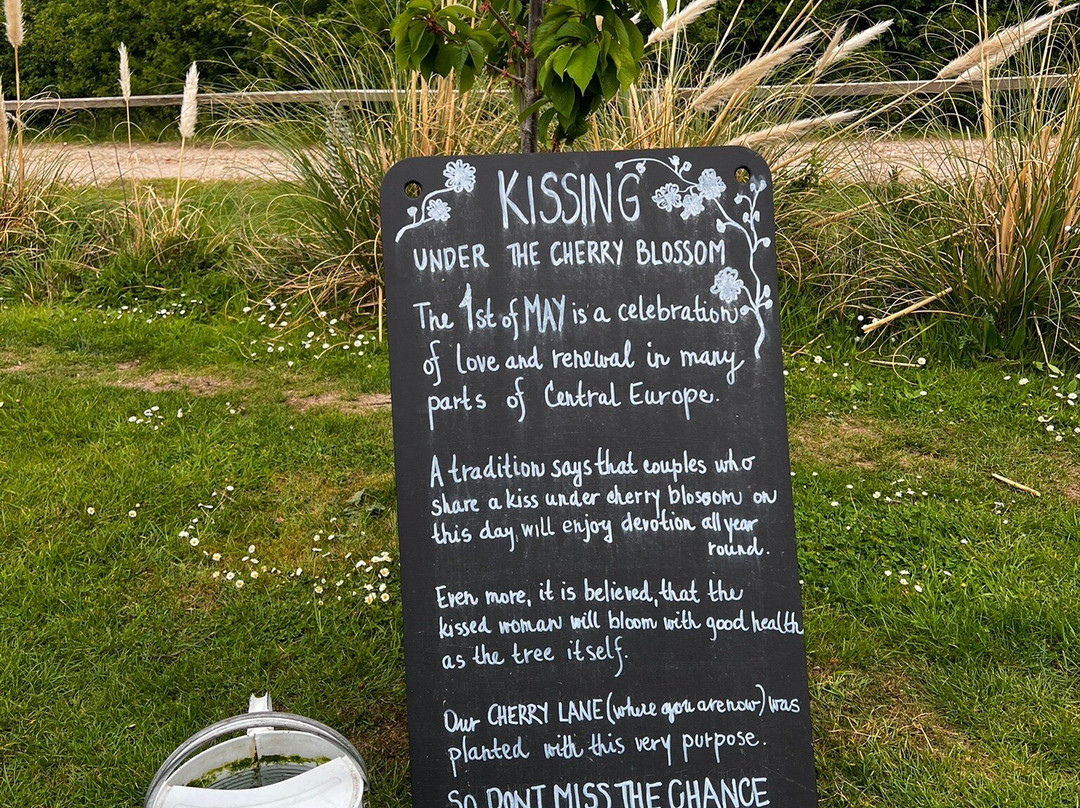 KISSING
UNDER THE CHERRY BLOSSOM
The 1st of MAY is a celebration
of love and renewal in many
parts of Central Europe.
A tradition says that couples who
share a kiss under cherry blossom on
this day, will enjoy devotion all year
round.
Even more, it is believed, that the
kissed woman will bloom with good health
as the tree itself.
Our CHERRY LANE (where you are now) was
planted with this very purpose.
SO DONT MISS THE CHANCE